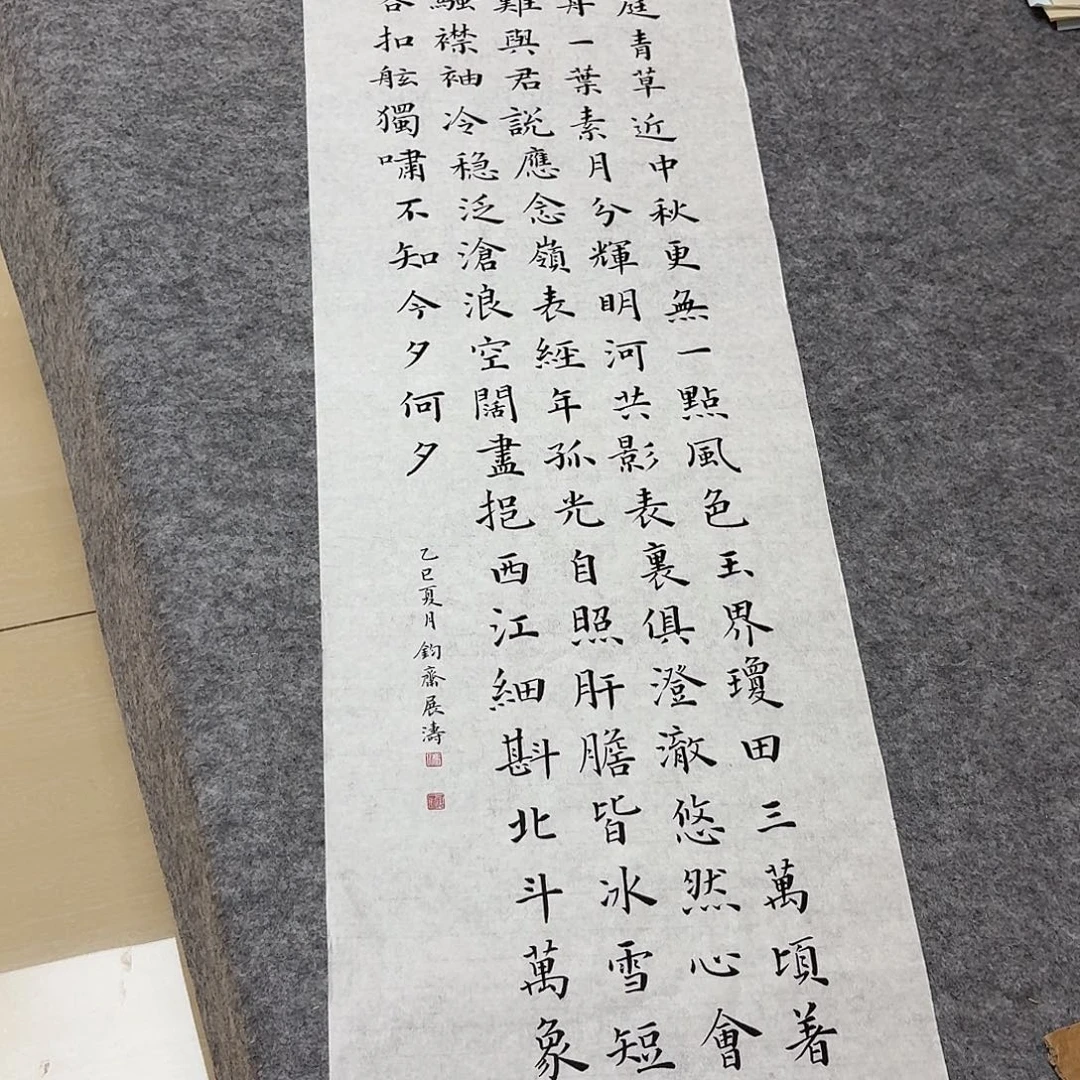 庭青草近中秋更無一點風色玉界瓊田三萬頃著
舟一葉素月分輝明河共影表裏俱澄澈悠然心會
難與君説應念嶺表經年孤光自照肝膽皆冰雪短
騷襟袖冷稳泛滄浪空闊盡挹西江細斟北斗萬象
客扣舷獨嘯不知今夕何夕
乙巳夏月鈞齋展濤